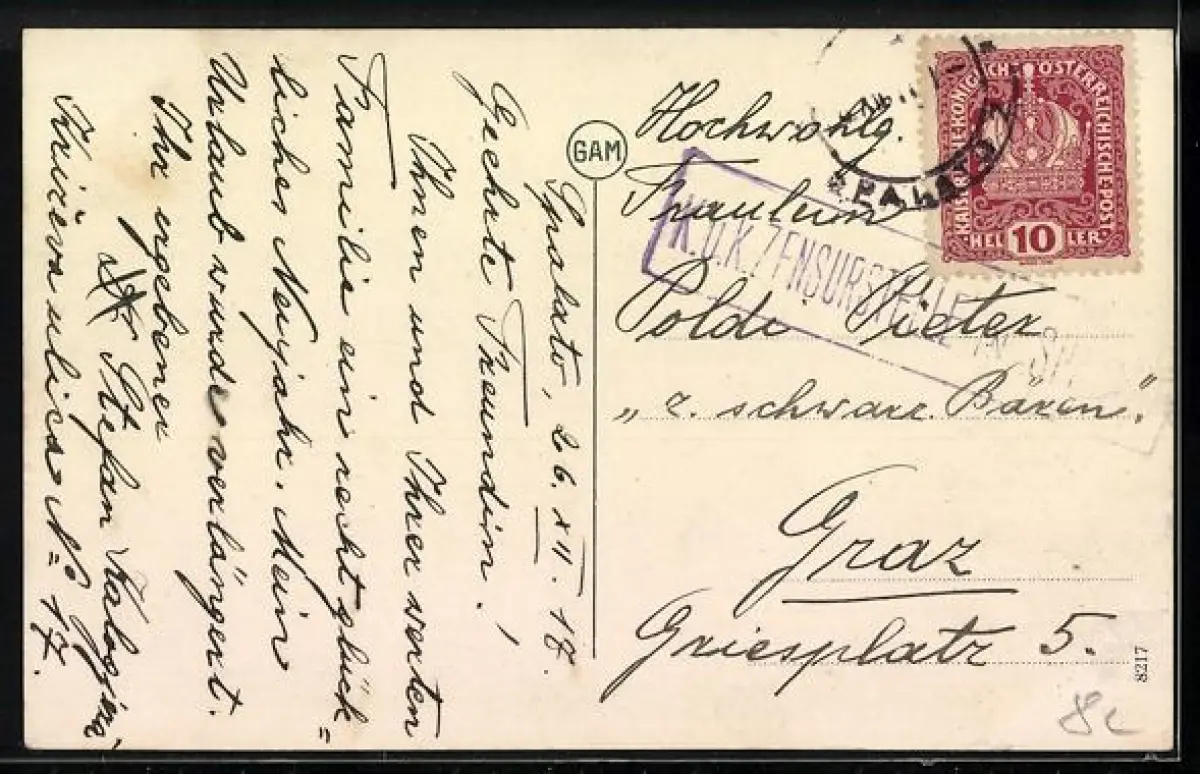 Spalato, 26. XII. 17.
Geehrte Freundin!
Ihnen und Ihrer werten
Familie ein recht glück=
liches Neujahr. Mein
Urlaub wurde verlängert.
Ihr ergebener
Stefan
ulica No 17.
GAM
Hochwohlg.
Fräulein
Poldi Pieter
"z. schwarz. Bären".
Graz
Griesplatz 5.
KAISERLICHE KÖNIGLICH ÖSTERREICHISCHE POST
HELLER
10
SPALATO 2
K.U.K. ZENSURSTELLE
8217
8c